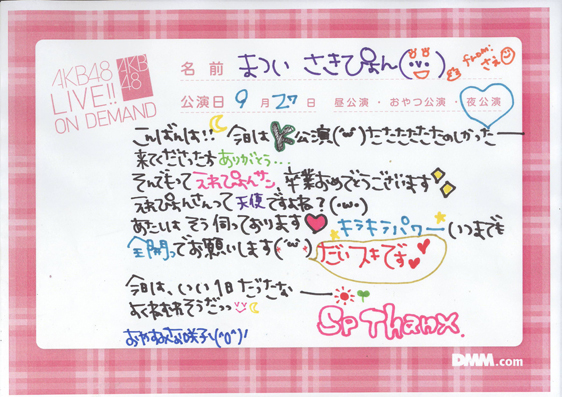 AKB48
LIVE!!
ON DEMAND
AKB
48
名前 まつい さきぴょん from:さえ
公演日 9月27日 昼公演・おやつ公演・夜公演
こんばんは!! 今日はK公演(˘ω˘)たたたたたたのしかったー
来てくださった方ありがとう...
そんでもってえれぴょんサン、卒業おめでとうございます
えれぴょんさんって天使ですよね?(・ω・)
あたしはそう伺っております♥ キラキラパワーいつまでも
全開っでお願いします(˘ω˘) だいスキです♥♥
今日は、いい1日だったなー
よくねむれそうだっっ
おやすみなさい咲子\(^o^)/
Sp Thanx.
DMM.com